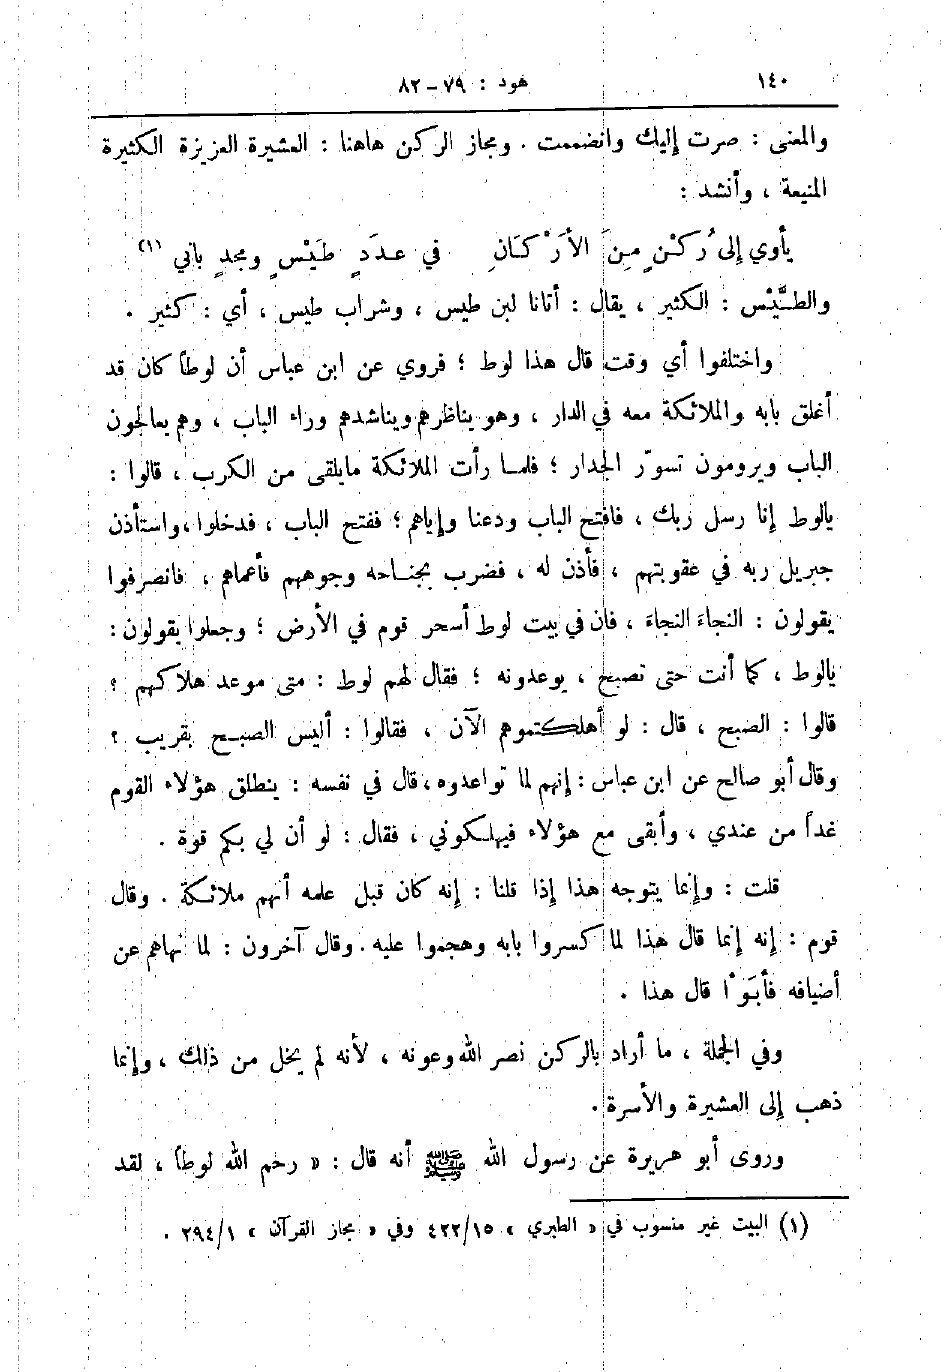 ١٤٠ هود : ٧٩ – ٨٢
والمعنى : صرت إليك وانضممت . ومجاز الركن هاهنا : العشيرة العزيزة الكثيرة
المنيعة ، وأنشد :
يأوي إلى رُكْنٍ مِنَ الأَرْكَانِ في عدَدٍ طَيْسٍ ومجدٍ باني (١)
والطَّيْس : الكثير ، يقال : أتانا لبن طيس ، وشراب طيس ، أي : كثير .
واختلفوا أي وقت قال هذا لوط ؛ فروي عن ابن عباس أن لوطاً كان قد
أغلق بابه والملائكة معه في الدار ، وهو يناظرهم ويناشدهم وراء الباب ، وهم يعالجون
الباب ويرومون تسوّر الجدار ؛ فلما رأت الملائكة مايلقى من الكرب ، قالوا :
يالوط إنا رسل ربك ، فافتح الباب ودعنا وإياهم ؛ ففتح الباب ، فدخلوا ، واستأذن
جبريل ربه في عقوبتهم ، فأذن له ، فضرب بجناحه وجوههم فأعماهم ، فانصرفوا
يقولون : النجاءَ النجاءَ ، فان في بيت لوط أسحر قوم في الأرض ؛ وجعلوا يقولون :
يالوط ، كما أنت حتى تصبح ، يوعدونه ؛ فقال لهم لوط : متى موعد هلاكهم ؟
قالوا : الصبح ، قال : لو أهلكتموهم الآن ، فقالوا : أليس الصبح بقريب ؟
وقال أبو صالح عن ابن عباس : إنهم لما تواعدوه ، قال في نفسه : ينطلق هؤلاء القوم
غداً من عندي ، وأبقى مع هؤلاء فيهلكوني ، فقال : لو أن لي بكم قوة .
قلت : وإنما يتوجه هذا إذا قلنا : إنه كان قبل علمه أنهم ملائكة . وقال
قوم : إنه إنما قال هذا لما كسروا بابه وهجموا عليه . وقال آخرون : لما نهاهم عن
أضيافه فأبَوْا قال هذا .
وفي الجملة ، ما أراد بالركن نصر الله وعونه ، لأنه لم يخل من ذلك ، وإنما
ذهب إلى العشيرة والأسرة .
وروى أبو هريرة عن رسول الله ﷺ أنه قال : « رحم الله لوطاً ، لقد
(١) البيت غير منسوب في « الطبري » ٤٢٢/١٥ وفي « مجاز القرآن » ٢٩٤/١ .